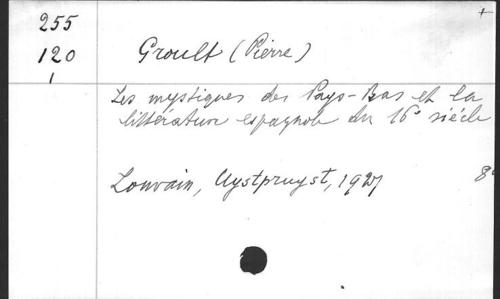 255
120
1
+
Groult (Pierre)
Les mystiques des Pays-Bas et la
littérature espagnole du 16e siècle
Louvain, Uystpruyst, 1927
8°